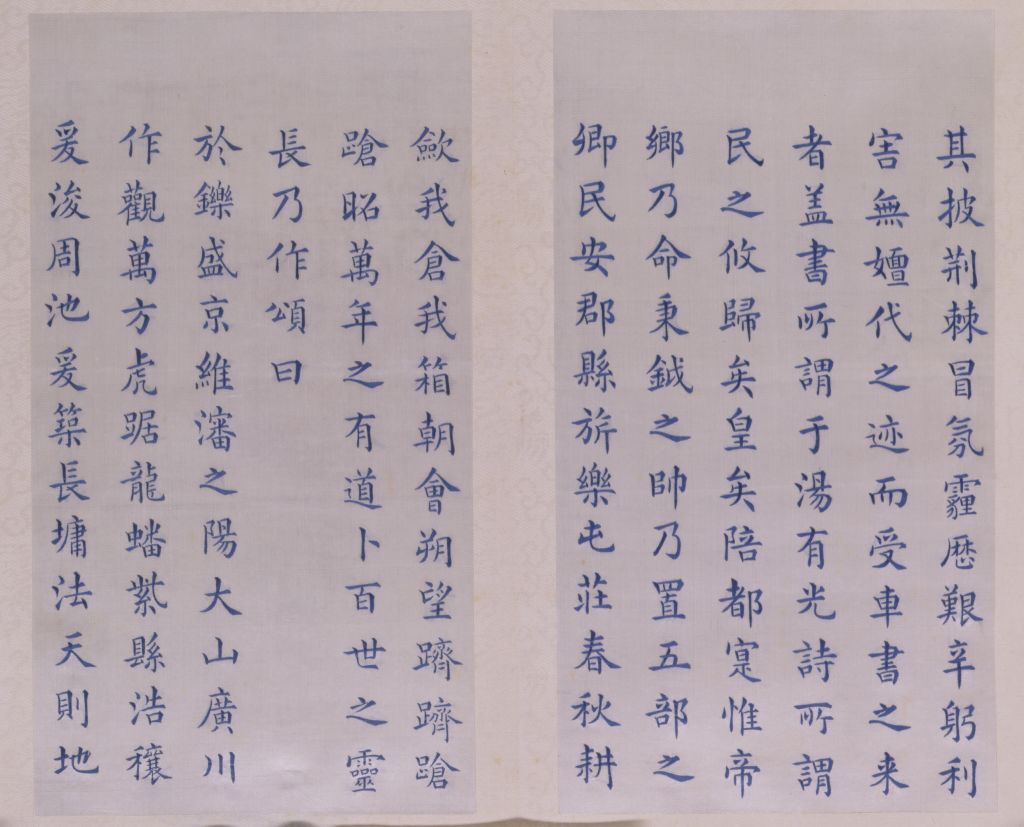 其披荆棘冒氛霾歷艱辛躬利
害無嬗代之迹而受車書之来
者盖書所謂于湯有光詩所謂
民之攸歸矣皇矣陪都寔惟帝
鄉乃命秉鉞之帥乃置五部之
卿民安郡縣旂樂屯莊春秋耕
斂我倉我箱朝會朔望躋躋蹌
蹌昭萬年之有道卜百世之靈
長乃作頌曰
於鑠盛京維瀋之陽大山廣川
作觀萬方虎踞龍蟠紫縣浩穰
爰浚周池爰築長墉法天則地